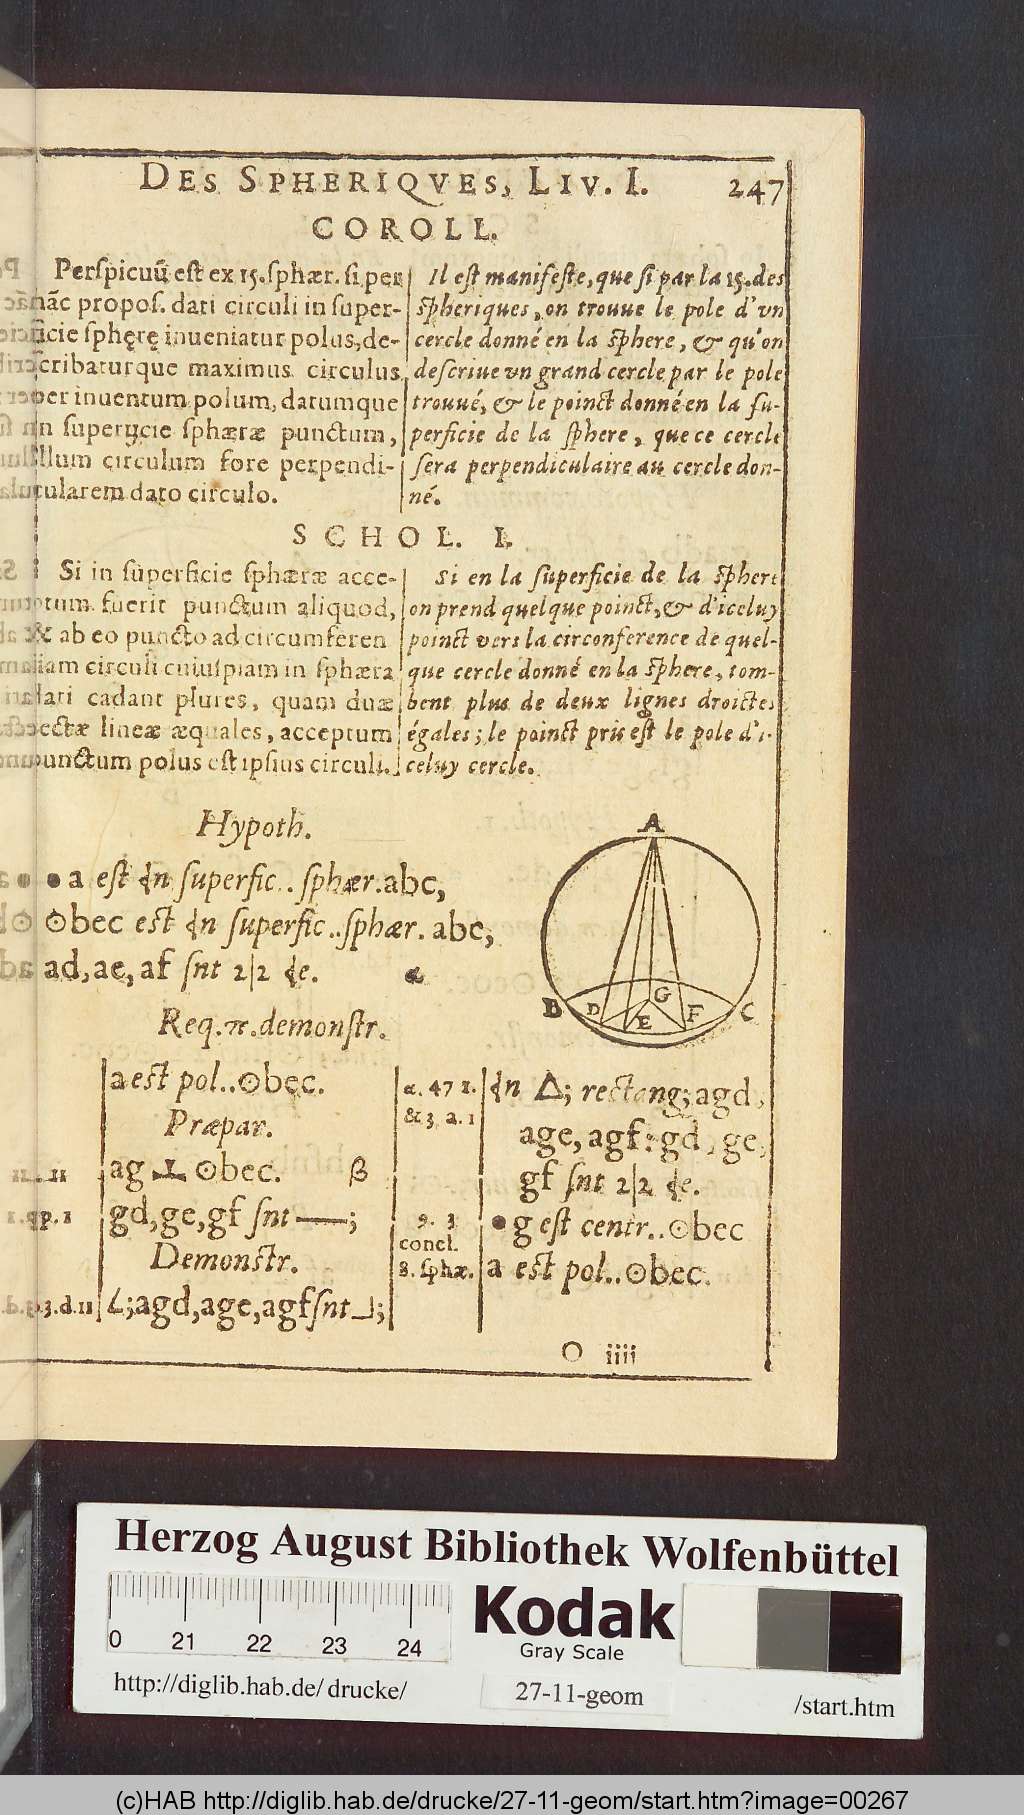 DES SPHERIQVES, LIV. I. 247
COROLL.
Perſpicuū eſt ex 15. ſphær. ſi per
hāc propoſ. dati circuli in ſuper-
ficie ſphęrę inueniatur polus, de-
ſcribaturque maximus circulus
per inuentum polum, datumque
in ſuperficie ſphæræ punctum,
illum circulum fore perpendi-
cularem dato circulo.
Il eſt manifeſte, que ſi par la 15. des
ſpheriques, on trouue le pole d'vn
cercle donné en la ſphere, & qu'on
deſcriue vn grand cercle par le pole
trouué, & le poinct donné en la ſu-
perficie de la ſphere, que ce cercle
ſera perpendiculaire au cercle don-
né.
SCHOL. I.
Si in ſuperficie ſphæræ acce-
ptum fuerit punctum aliquod,
& ab eo puncto ad circumferen
tiam circuli cuiuſpiam in ſphæra
dati cadant plures, quam duæ
rectæ lineæ æquales, acceptum
punctum polus eſt ipſius circuli.
Si en la ſuperficie de la ſphere
on prend quelque poinct, & d'iceluy
poinct vers la circonference de quel-
que cercle donné en la ſphere, tom-
bent plus de deux lignes droictes
égales; le poinct pris eſt le pole d'i-
celuy cercle.
Hypoth.
• a eſt in ſuperfic.. ſphær. abc,
⊙bec eſt in ſuperfic.. ſphær. abc,
ad, ae, af ſnt 2|2 de. α
Req. π. demonſtr.
a eſt pol.. ⊙bec.
Præpar.
11. 11 ag ⊥ ⊙bec. β
1. p. 1 gd, ge, gf ſnt —;
Demonſtr.
3. d. 11 ∠; agd, age, agf ſnt ⅃;
α. 47 1. in Δ; rectang; agd,
& 3. a. 1 age, agf: gd, ge,
gf ſnt 2|2 de.
9. 3 • g eſt centr.. ⊙bec
concl.
8. ſphæ. a eſt pol.. ⊙bec.
A
B D E G F C
O iiii
Herzog August Bibliothek Wolfenbüttel
0 21 22 23 24
Kodak
Gray Scale
http://diglib.hab.de/drucke/
27-11-geom
/start.htm
(c)HAB http://diglib.hab.de/drucke/27-11-geom/start.htm?image=00267